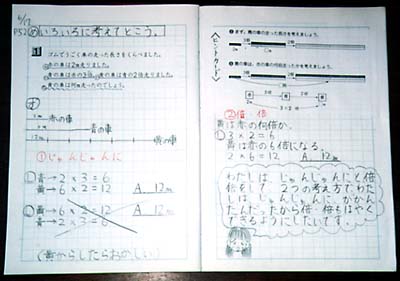 6/12
P52 め いろいろに考えてとこう。
1 ゴムでうごく車の走った長さをくらべました。
赤の車は2m走りました。
青の車は赤の3倍、黄の車は青の2倍走りました。
黄の車は何m走ったのでしょう。
図
2m 赤の車
青の車
黄の車
①じゅんじゅんに
青→2×3=6
黄→6×2=12 A 12m
黄→6×2=12 A 12m
青→2×3=6
(黄からしたらおかしい)
〈ヒントカード〉
3倍 2倍
3倍 2倍
3×2=6
②倍・倍
黄は赤の何倍か。
3×2=6
黄は赤の6倍になる。
2×6=12 A 12m
わたしは、じゅんじゅんにと倍
倍をして、2つの考え方でわた
しは、じゅんじゅんに、かかん
たんだったから倍・倍もはやく
できるようにしたいです。